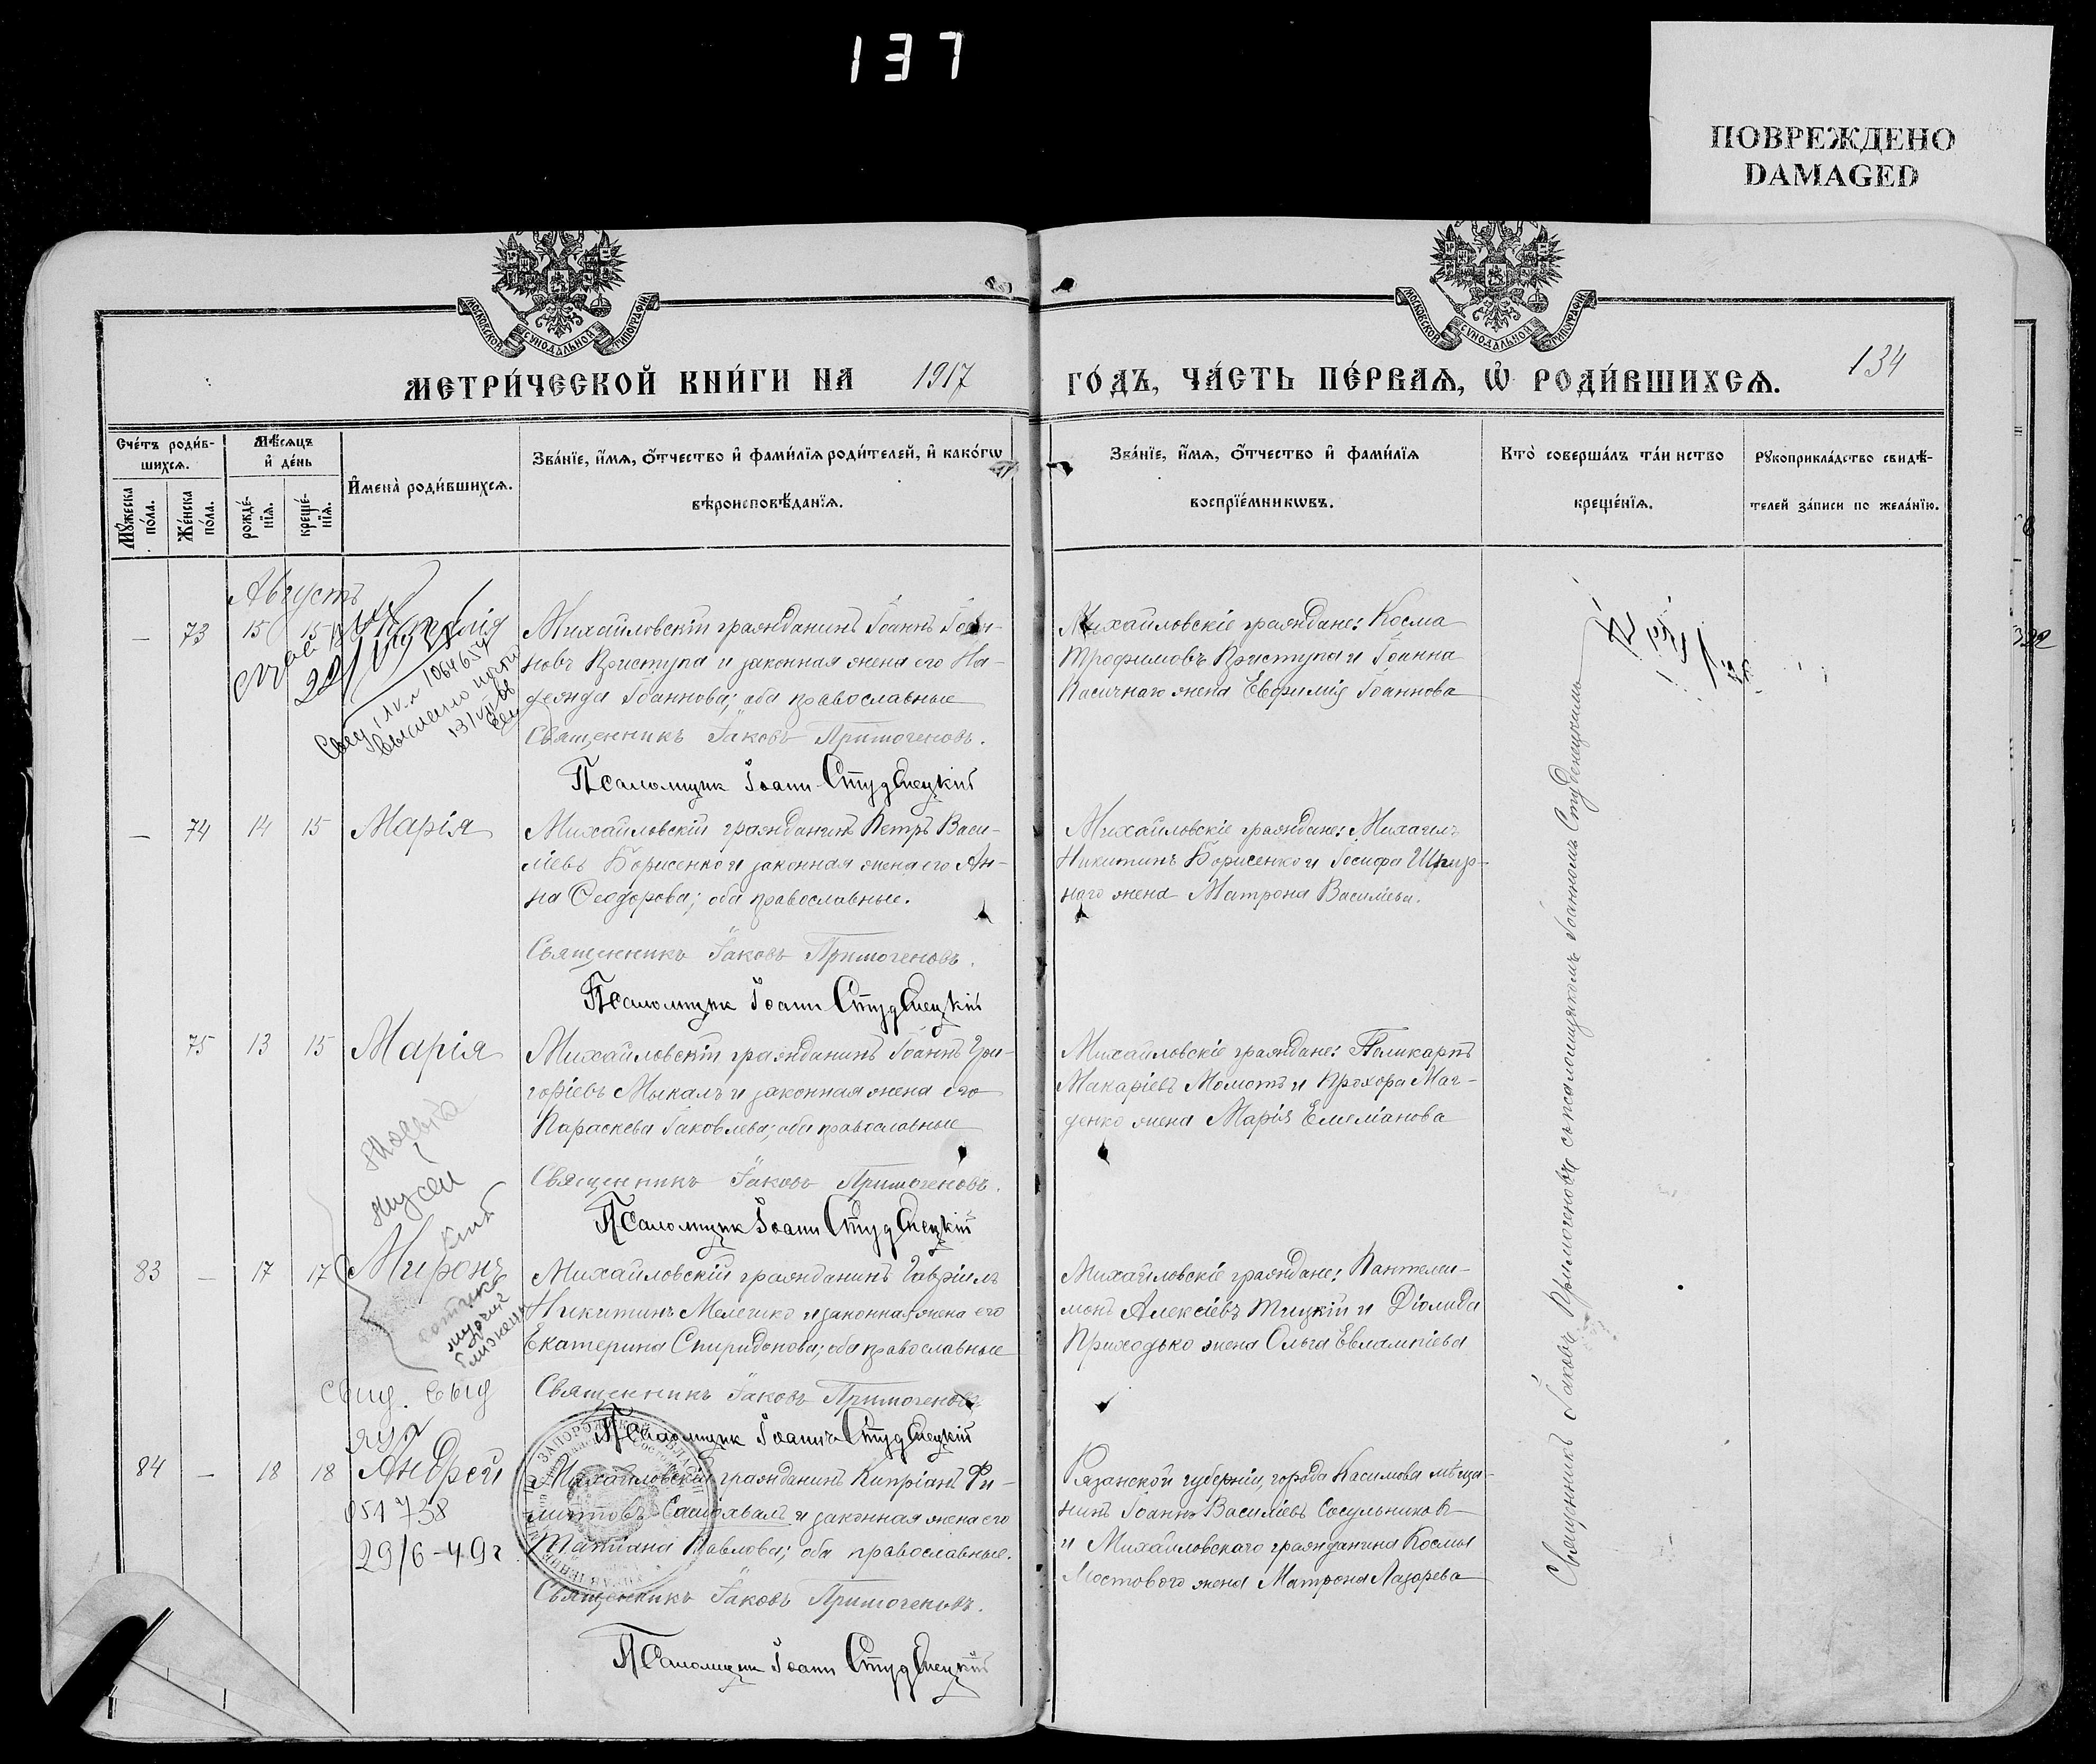 137
ПОВРЕЖДЕНО
DAMAGED
МОСКОВСКОЙ СУНОДАЛЬНОЙ ТИПОГРАФІИ
МОСКОВСКОЙ СУНОДАЛЬНОЙ ТИПОГРАФІИ
МЕТРИ́ЧЕСКОЙ КНИ́ГИ НА 1917 ГО́ДЪ, ЧА́СТЬ ПЕ́РВАѦ, Ѡ҆ РОДИ́ВШИХСѦ.
134
Сче́тъ роди́в-
шихсѧ.
Мꙋжеска по́ла.
Же́нска по́ла.
Мѣ́сѧцъ
и҆ де́нь
рожде́-
нїѧ.
креще́-
нїѧ.
И҆мена̀ роди́вшихсѧ.
Зва́нїе, и҆́мѧ, ѻ҆́тчество и҆ фами́лїѧ роди́телей, и҆ како́гѡ
вѣроисповѣ́данїѧ.
Зва́нїе, и҆́мѧ, ѻ҆́тчество и҆ фами́лїѧ
воспрїе́мникѡвъ.
Кто̀ соверша́лъ та́инство
креще́нїѧ.
Рꙋкоприкла́дство свидѣ́-
телей за́писи по жела́нїю.
Августъ
— 73 15 15
Михайловскій гражданинъ Іоаннъ Іоан-
новъ Приступа и законная жена его На-
дежда Іоаннова; оба православные
Священникъ Іаковъ Примогеновъ.
Псаломщик Іоанн Студенецкій
Михайловскіе граждане: Косма
Трофимовъ Приступа и Іоанна
Касичнаго жена Евфимія Іоаннова
1064654
выслано почт
13/VII 66
— 74 14 15 Марія
Михайловскій гражданинъ Петръ Васи-
ліевъ Борисенко и законная жена его Ан-
на Ѳеодорова; оба православные.
Священникъ Іаковъ Примогеновъ.
Псаломщик Іоанн Студенецкій
Михайловскіе граждане: Михаилъ
Никитинъ Борисенко и Іосифа
наго жена Матрона Василіева.
75 13 15 Марія
Михайловскій гражданинъ Іоаннъ Гри-
горіевъ Мыкалъ и законная жена его
Параскева Іаковлева; оба православные
Священникъ Іаковъ Примогеновъ.
Псаломщик Іоанн Студенецкій
Михайловскіе граждане: Поликарпъ
Макаріевъ Момотъ и Прохора Маг-
денко жена Марія Емеліанова
83 — 17 17 Миронъ
Михайловскій гражданинъ Гавріилъ
Никитинъ Мелешко и законная жена его
Екатерина Спиридонова; оба православные
Священникъ Іаковъ Примогеновъ
Псаломщик Іоаннъ Студенецкій
Михайловскіе граждане: Пантелеи-
монъ Алексіевъ Тицкій и Діомида
Приходько жена Ольга Евлампіева
Свид. выд
84 — 18 18 Андрей
051738
29/6-49г
Михайловскій гражданинъ Кипріанъ Фи-
липповъ Самохвалъ и законная жена его
Татіана Павлова; оба православные.
Священникъ Іаковъ Примогеновъ.
Псаломщик Іоанн Студенецкій
Рязанской губерніи, города Касимова мѣща-
нинъ Іоаннъ Василіевъ Сосульниковъ
и Михайловскаго гражданина Космы
Мостового жена Матрона Лазарева
Священникъ Іаковъ Примогеновъ съ псаломщикомъ Іоанномъ Студенецкимъ